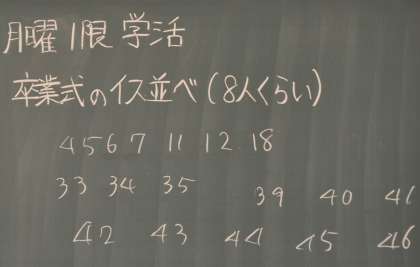 月曜1限 学活
卒業式のイス並べ(8人くらい)
4 5 6 7 11 12 18
33 34 35 39 40 41
42 43 44 45 46